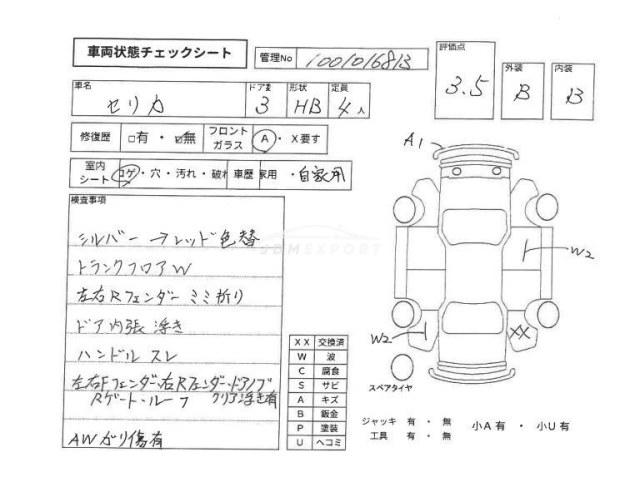 車両状態チェックシート
管理No 1001016813
評価点 3.5
外装 B
内装 B
車名 セリカ
ドア数 3
形状 HB
定員 4人
修復歴 □有・☑無
フロントガラス A・X要す
室内シート コゲ・穴・汚れ・破れ
車歴 家用・自家用
検査事項
シルバー→レッド色替
トランクフロアW
左右Rフェンダーミミ折り
ドア内張浮き
ハンドルスレ
左右Fフェンダー・右Rフェンダー・ドアノブ
Rゲート・ルーフ クリアー浮き有
AWガリ傷有
JDMEXPORT
A1
W2
W2
XX
スペアタイヤ
XX 交換済
W 波
C 腐食
S サビ
A キズ
B 鈑金
P 塗装
U ヘコミ
ジャッキ 有・無
工具 有・無
小A有・小U有